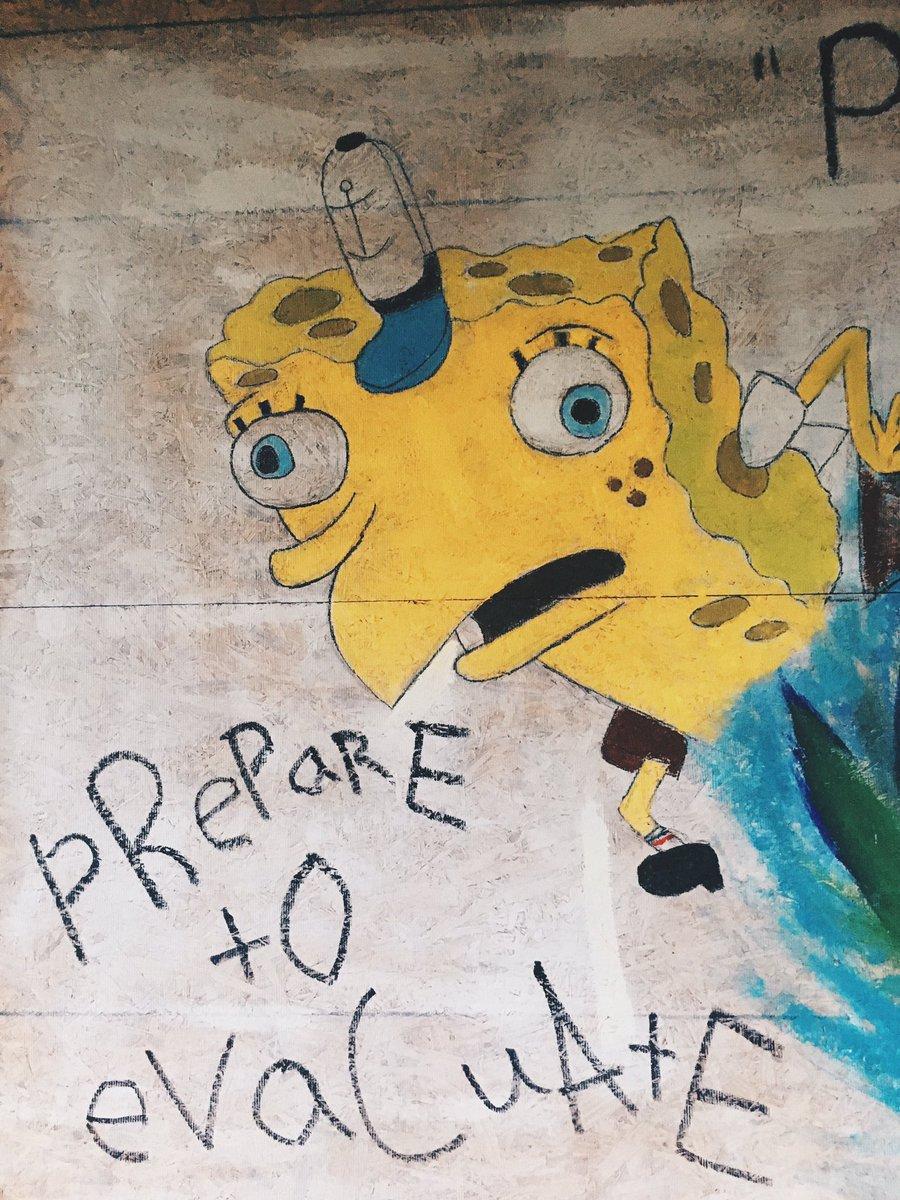 "P
pRepaRE
tO
evaCuAtE